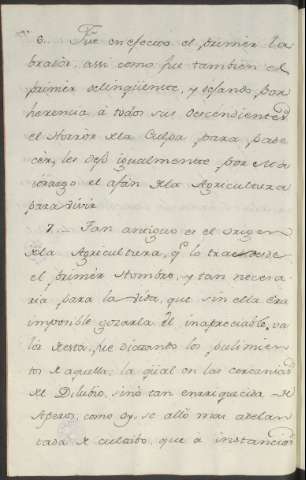 6.. Fue en efecto el primer La
brador, assi como fue tambien el
primer delinquente, y dejando por
herencia à todos sus descendientes
el Horror dela Culpa para pade
cer, les dejó igualmente por Ma
iorazgo el afán dela Agricultura
para vivir
7.. Tan antiguo es el origen
dela Agricultura, qe. lo trae desde
el primer Hombre, y tan necesa
ria para la vida, que sin ella era
imposible gozarla. El inapreciable va
lor de esta, fue dictando los pulimien
tos de aquella: la qual en las cercanias
del Diluvio, sino tan enriquecida de
Aperos, como oy, se alló mas adelan
tada de cultibo, que a instancias